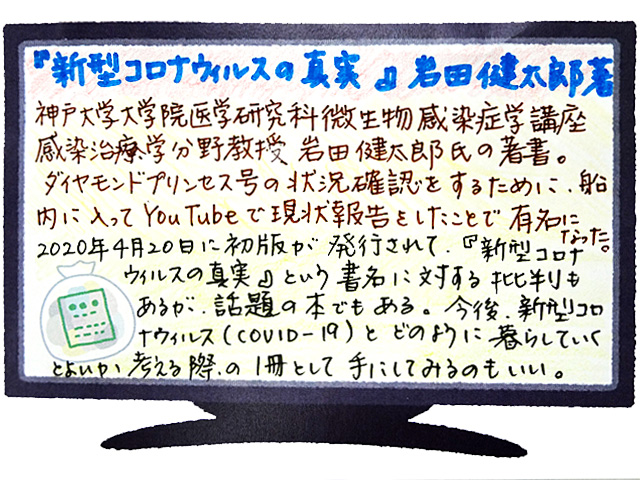 『新型コロナウィルスの真実』岩田健太郎著
神戸大学大学院医学研究科微生物感染症学講座
感染治療学分野教授 岩田健太郎氏の著書。
ダイヤモンドプリンセス号の状況確認をするために、船
内に入ってYouTubeで現状報告をしたことで有名に
なった。
2020年4月20日に初版が発行されて、『新型コロナ
ウィルスの真実』という書名に対する批判も
あるが、話題の本でもある。今後、新型コロ
ナウィルス(COVID-19)とどのように暮らしていく
とよいか考える際の1冊として手にしてみるのもいい。